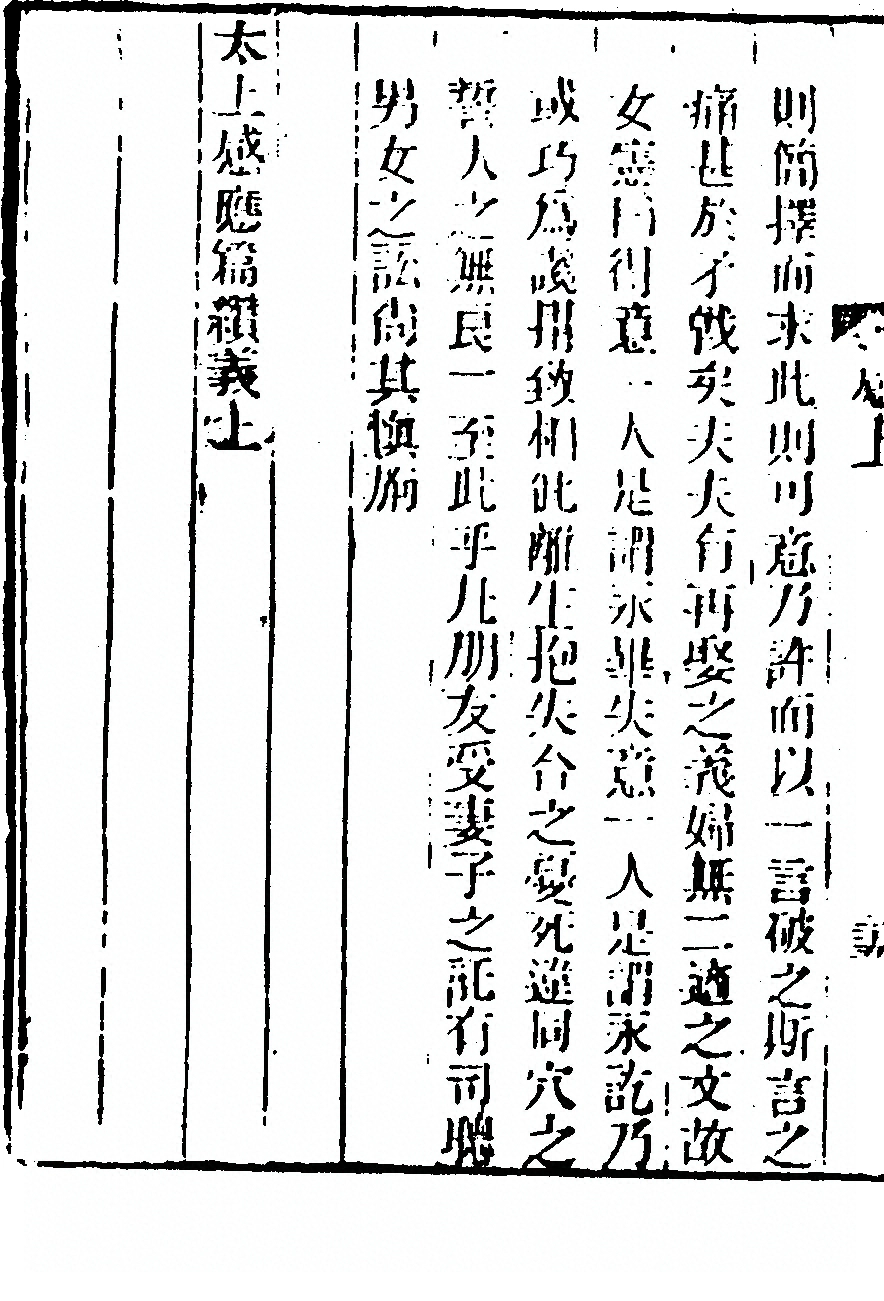 則簡擇而求此則可意乃許而以一言破之斯言之
痛甚於矛戟矣夫夫有再娶之義婦無二適之文故
女憲曰得意一人是謂永畢失意一人是謂永訖乃
或巧為讒搆致相仳離生抱失台之憂死違同穴之
誓人之無良一至此乎凡朋友受妻子之託有司聽
男女之訟尚其慎旃
太上感應篇纘義上